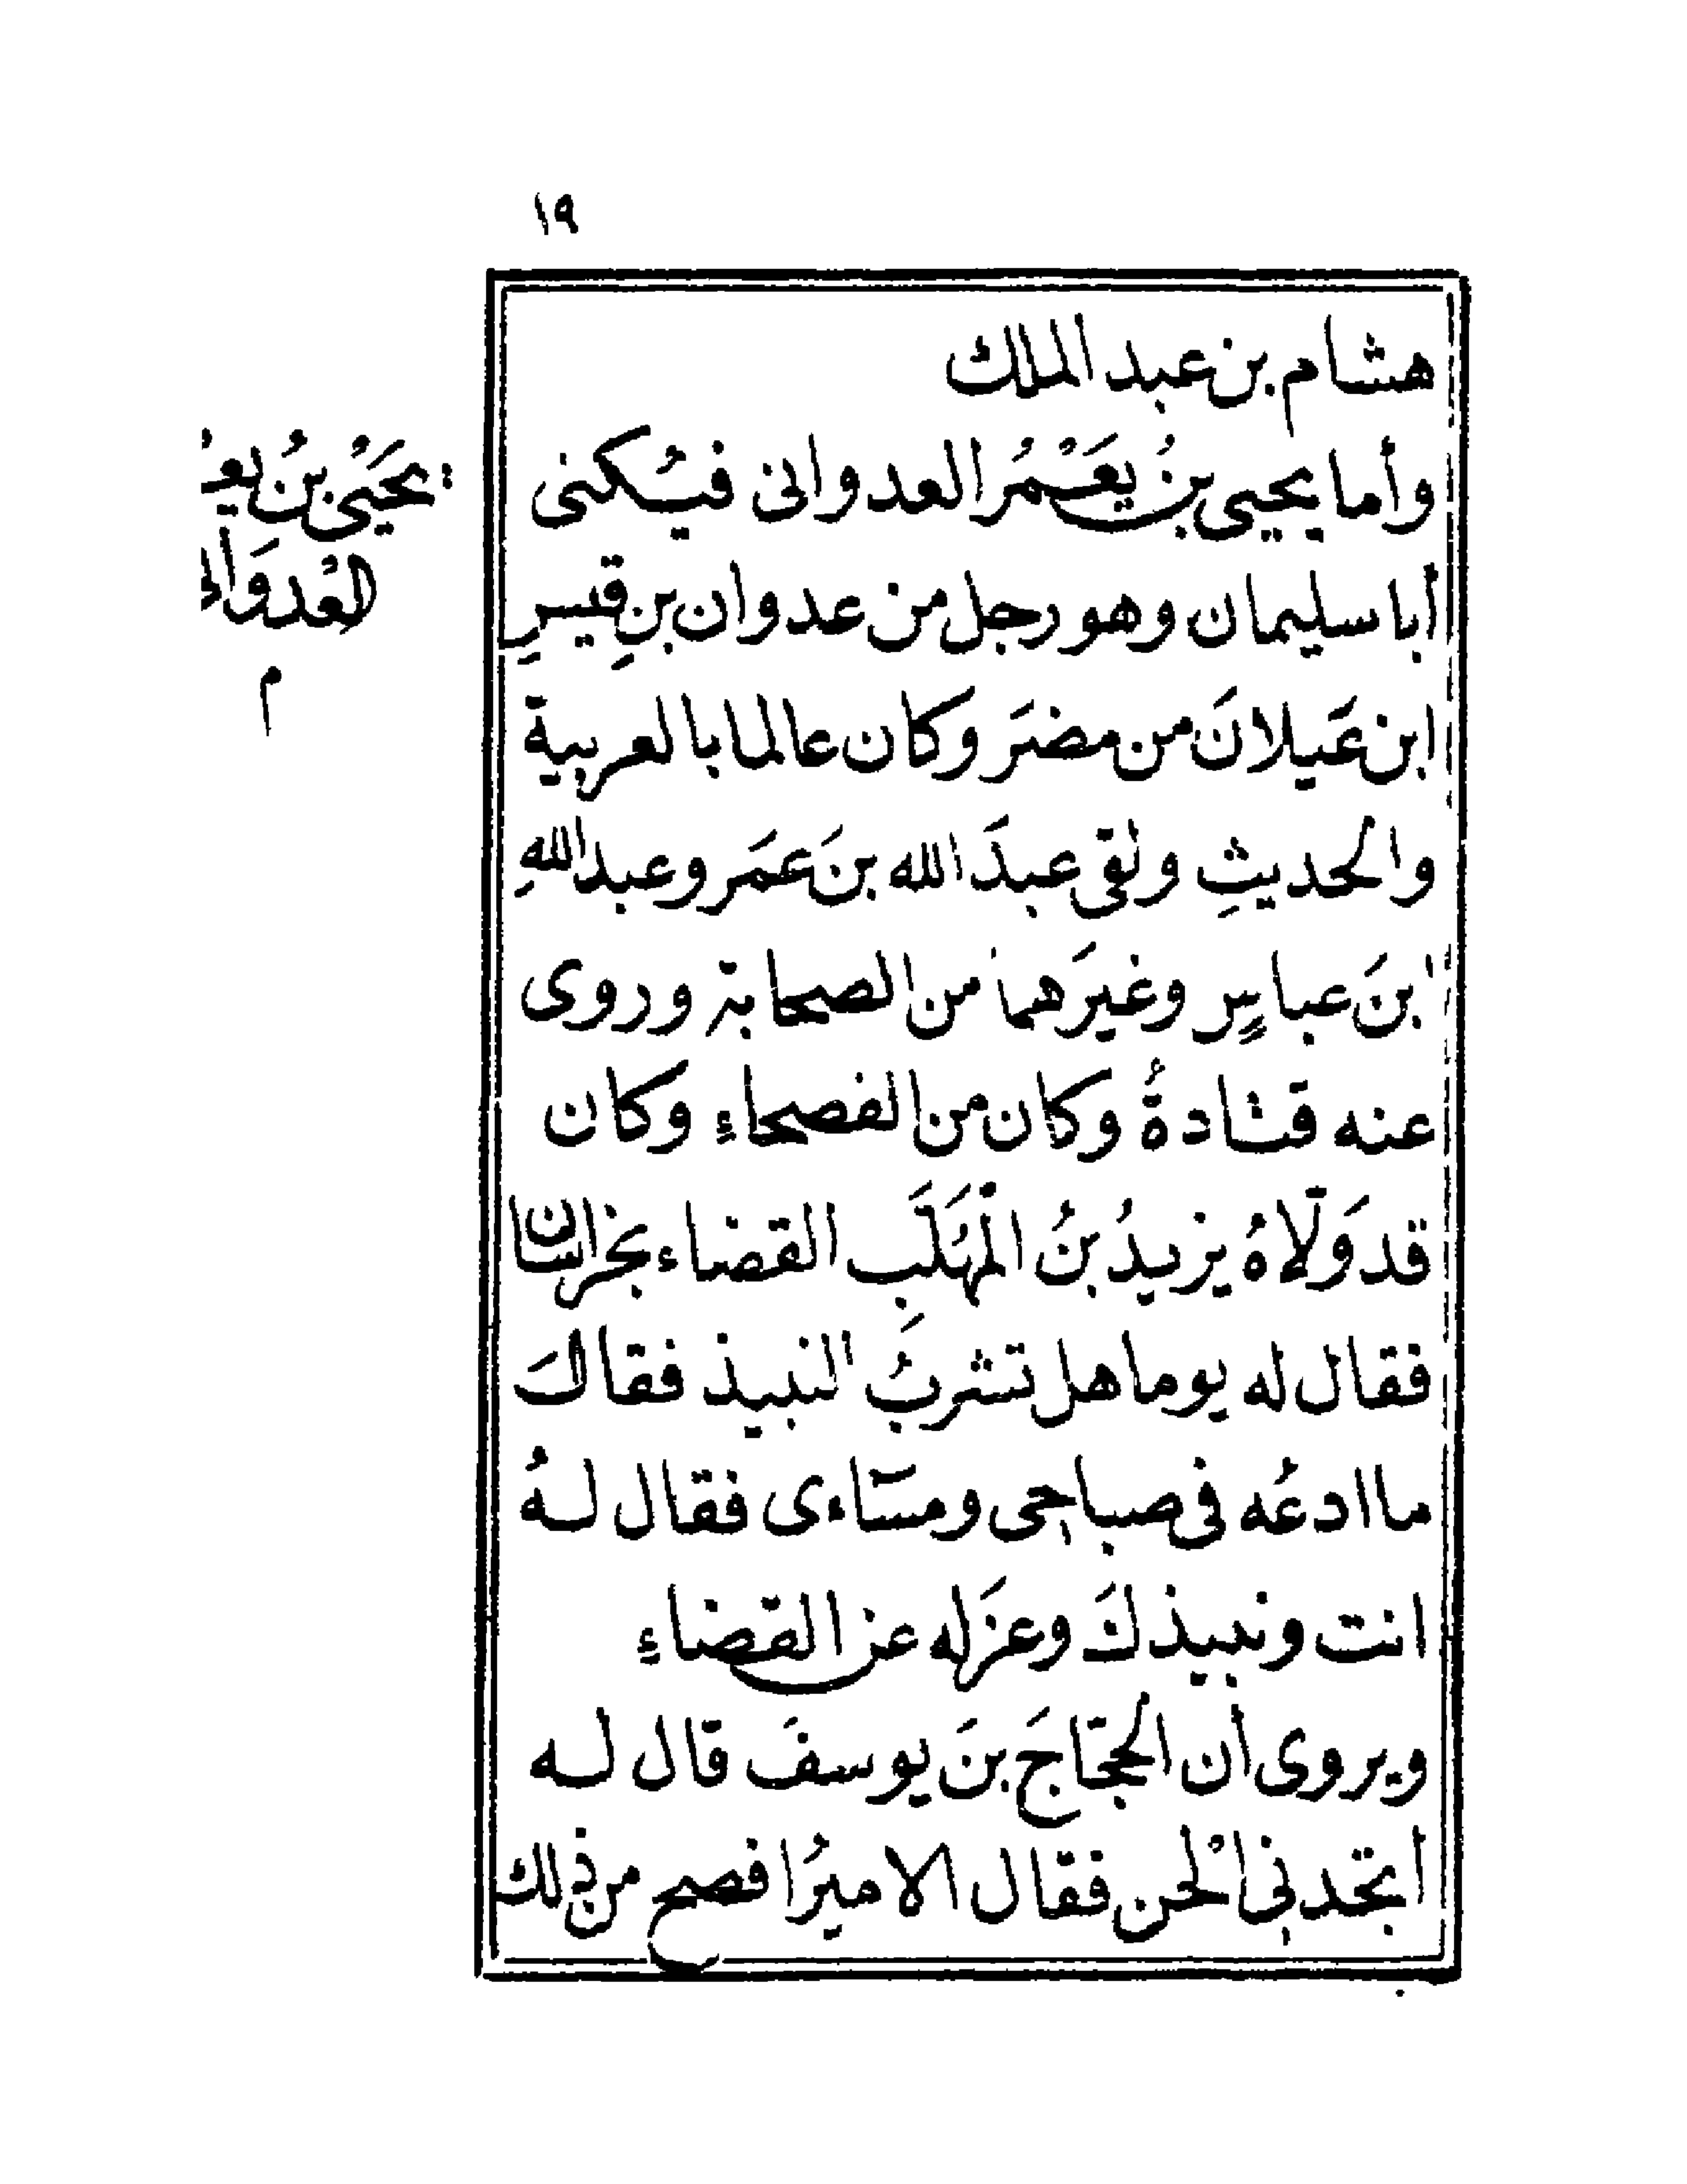 ١٩
هشام بن عبد الملك
وأما يحيى بنُ يَعْمُر العدوانى فيُكنى
أبا سليمان وهو رجل من عدوان بنِ قيسِ
ابن عَيلانَ من مضَر وكان عالما بالعربية
والحديثِ ولقى عبدَ الله بنَ عمَر وعبد اللهِ
ابنَ عباسٍ وغيرَهما من الصحابة وروى
عنه قتادةُ وكان من الفصحاءِ وكان
قد وَلّاهُ يزيدُ بنُ الْمُهَلَّبِ القضاء بخراسان
فقال له يوما هل تشربُ النبيذ فقالَ
ما ادعُه فى صباحى ومسَاءى فقال لهُ
انت ونبيذكَ وعزَله عن القضاءِ
ويروى أن الحجّاجَ بنَ يوسفَ قال له
أتجدنى ألْحن فقال الاميرُ افصح من ذلك
يَحْيَىُ بنُ
م